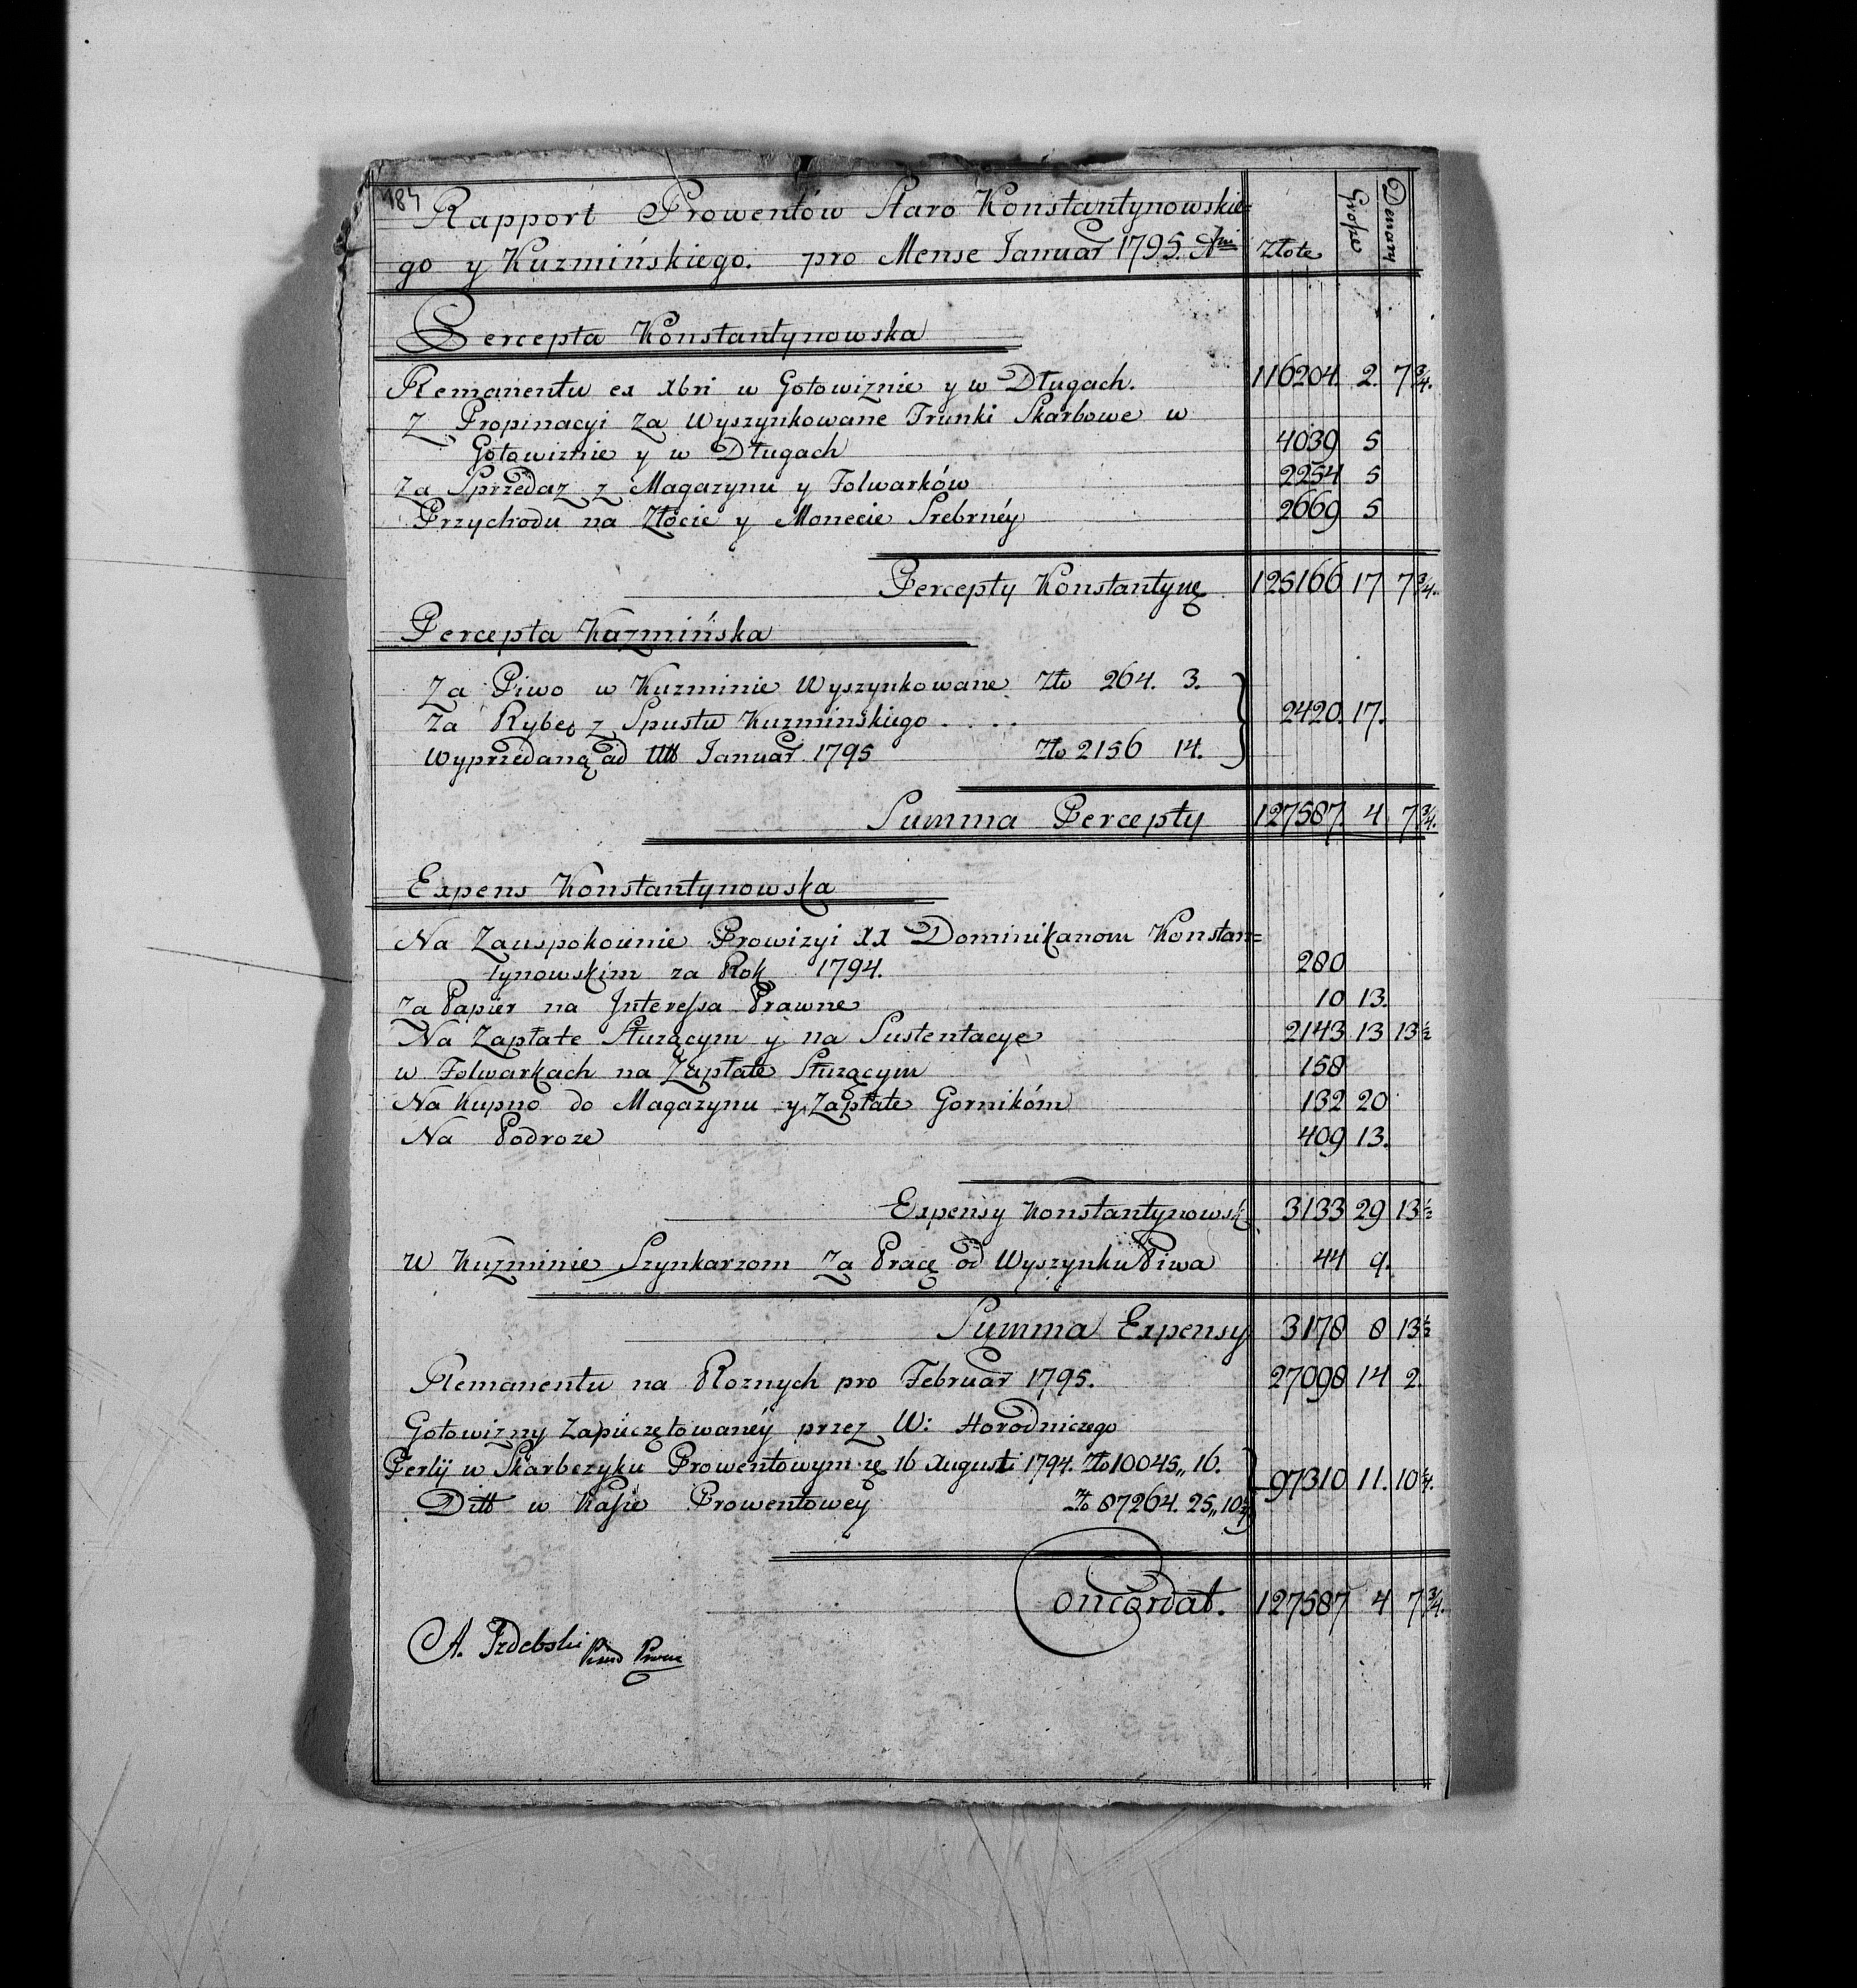 184
Rapport Prowentów Staro Konstantynowskie=
go y Kuzmińskiego. pro Mense Januar 1795. Złote Grosze Denary
Percepta Konstantynowska
Remanentu ex Xbri w Gotowiznie y w Długach. 116204. 2. 7 3/4.
Z Propinacyi Za Wyszynkowane Trunki Skarbowe w
Gotowiznie y w Długach 4039 5
Za Sprzedaz z Magazynu y Folwarków 2254 5
Przychodu na Złocie y Monecie Srebrnéy 2669 5
Percepty Konstantyn 125166 17 7 3/4.
Percepta Kuzmińska
Za Piwo w Kuzminie Wyszynkowane Zło 264. 3.
Za Rybę z Spustu Kuzminskiego . . . . 2420. 17.
Wyprzedaną ad Januar. 1795 Zło 2156 14.
Summa Percepty 127587. 4 7 3/4.
Expens Konstantynowska
Na Zauspokoienie Prowizyi XX Dominikanom Konstan=
tynowskim za Rok 1794. 280
Za Papier na Interessa Prawne 10 13.
Na Zapłate Służącym y na Sustentacye 2143 13 13 1/2
w Folwarkach na Zapłate Służącym 158
Na Kupno do Magazynu y Zapłate Gornikóm 132 20
Na Podroze 409 13.
Expensy Konstantynowsk 3133 29 13 1/2
W Kuzminie Szynkarzom Za Pracę od Wyszynku Piwa 44 9.
Summa Expensy 3178 8 13 1/2
Remanentu na Roznych pro Februar 1795. 27098 14 2.
Gotowizny Zapieczętowanéy przez W: Horodniczego
Perlij w Skarbczyku Prowentowym 16 Augusti 1794. Zło 10045,, 16. 97310 11. 10 1/4.
Ditt w Kassie Prowentowey Zło 87264. 25,, 10 1/4
Concordat. 127587 4 7 3/4.
A. Izdebski